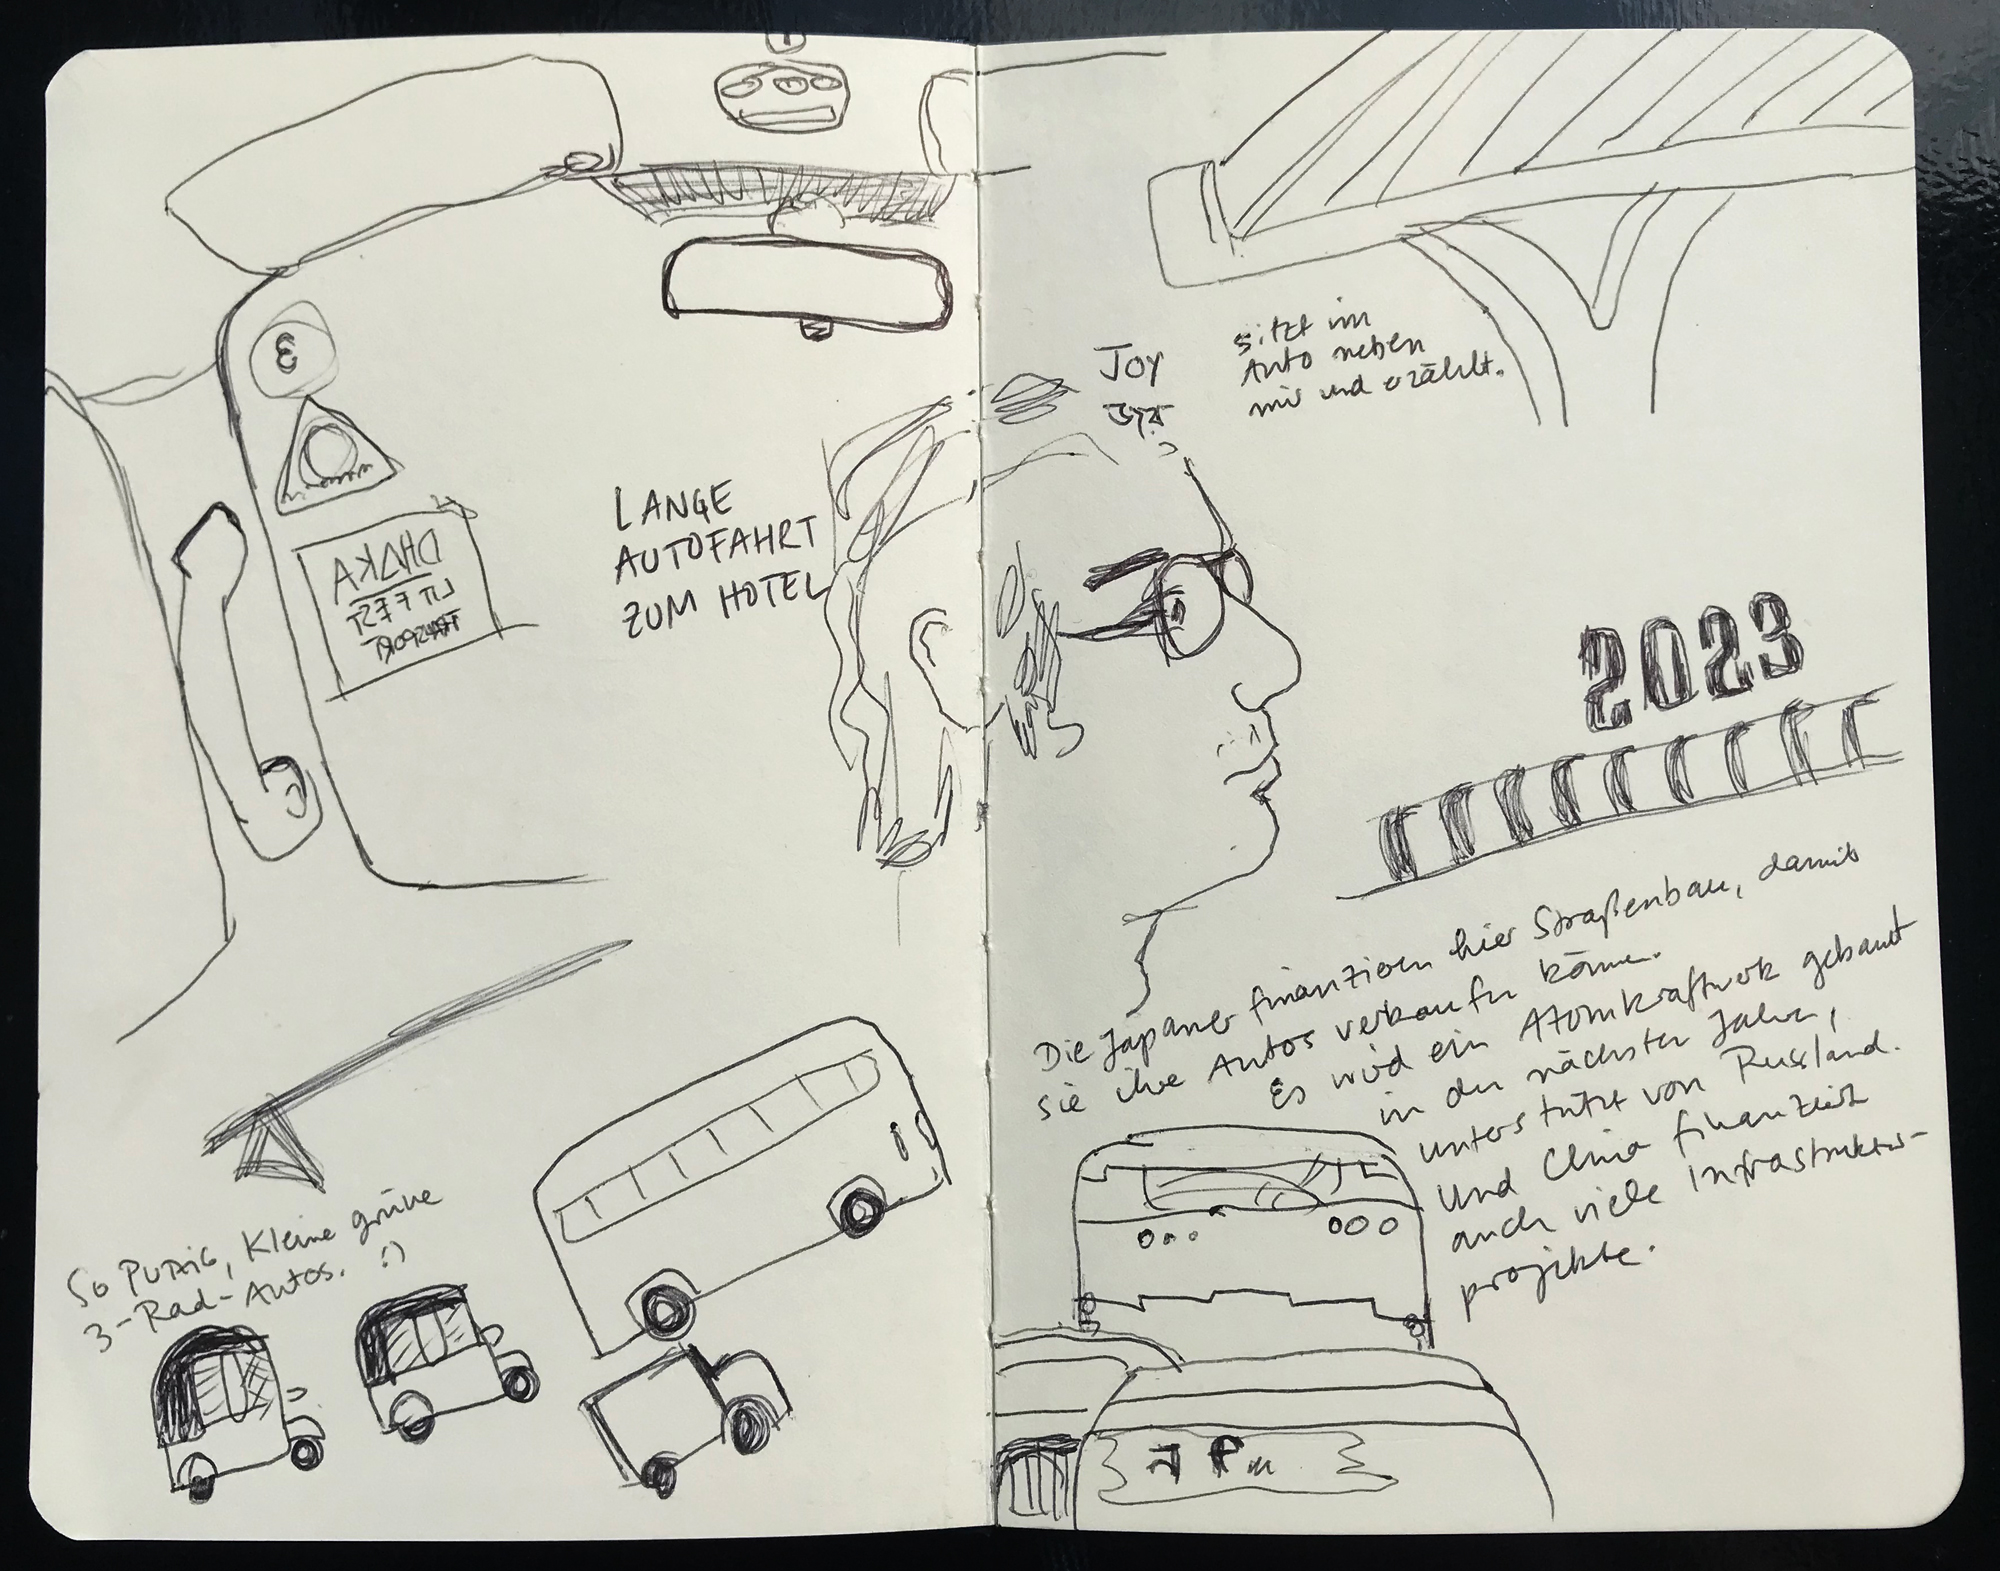 3
DHAKA
LIT FEST
LANGE
AUTOFAHRT
ZUM HOTEL
So PUTZIG, kleine grüne
3-Rad-Autos. :)
JOY
জয়
sitzt im
Auto neben
mir und erzählt.
2023
Die Japaner finanzieren hier Straßenbau, damit
sie ihre Autos verkaufen können.
Es wird ein Atomkraftwerk gebaut
in den nächsten Jahren,
unterstützt von Russland.
Und China finanziert
auch viele Infrastruktur-
projekte.